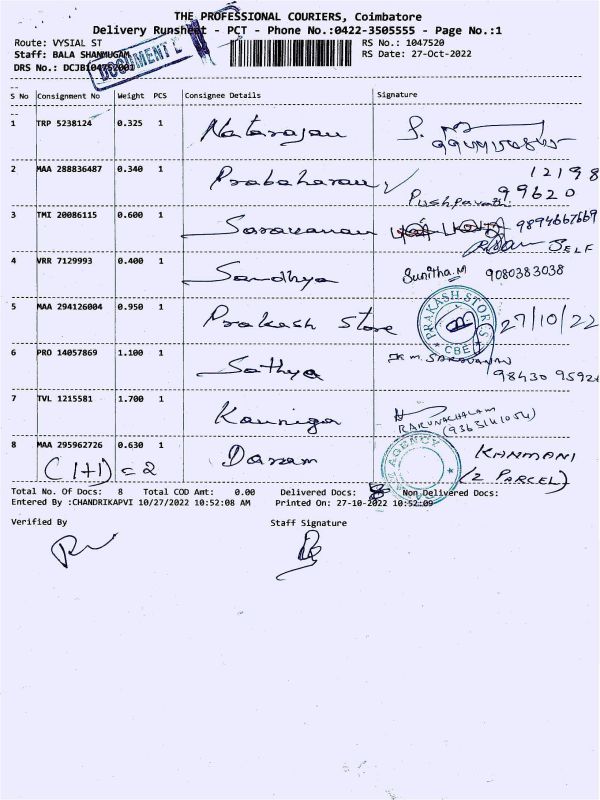 THE PROFESSIONAL COURIERS, Coimbatore
Delivery Runsheet - PCT - Phone No.:0422-3505555 - Page No.:1
Route: VYSIAL ST
RS No.: 1047520
Staff: BALA SHANMUGAM
RS Date: 27-Oct-2022
DRS No.: DCJB104752001
DOCUMENT
S No Consignment No Weight PCS Consignee Details Signature
1 TRP 5238124 0.325 1 Natarajan
2 MAA 288836487 0.340 1 Prabaharan 12198
Pushpavati 99620
3 TMI 20086115 0.600 1 Saravanan 9894667669
SELF
4 VRR 7129993 0.400 1 Sandhya Sunitha.M 9080383038
5 MAA 294126004 0.950 1 Prakash Store 27/10/22
PRAKASH STORES CBE
6 PRO 14057869 1.100 1 Sathya M. SARAVANAN
98430 95926
7 TVL 1215581 1.700 1 Kanniga
RARUNACHALAM
(9363141054)
8 MAA 295962726 0.630 1 KANMANI
AGENCY
(1+1) = 2 (2 PARCEL)
Total No. Of Docs: 8 Total COD Amt: 0.00 Delivered Docs: 8 Non Delivered Docs:
Entered By :CHANDRIKAPVI 10/27/2022 10:52:08 AM Printed On: 27-10-2022 10:52:09
Verified By Staff Signature